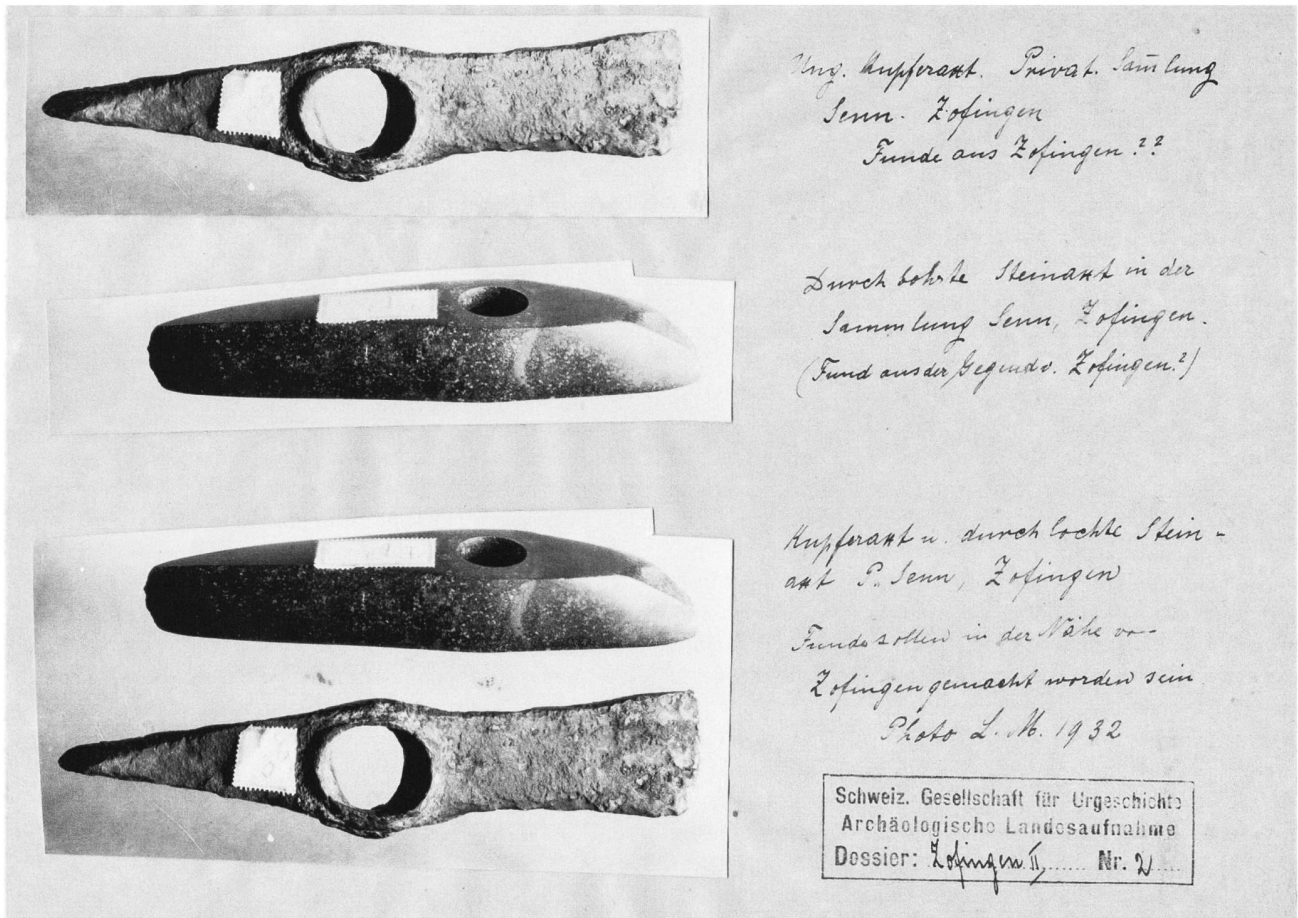 Ung. Kupferaxt. Privat. Sam̄lung
Senn. Zofingen
Funde aus Zofingen??
Durchbohrte Steinaxt in der
Sammlung Senn, Zofingen.
(Fund aus der Gegend v. Zofingen?)
Kupferaxt u. durchlochte Stein-
axt P. Senn, Zofingen
Funde sollen in der Nähe von
Zofingen gemacht worden sein
Photo L. M. 1932
Schweiz. Gesellschaft für Urgeschichte
Archäologische Landesaufnahme
Dossier: Zofingen II, Nr. 2